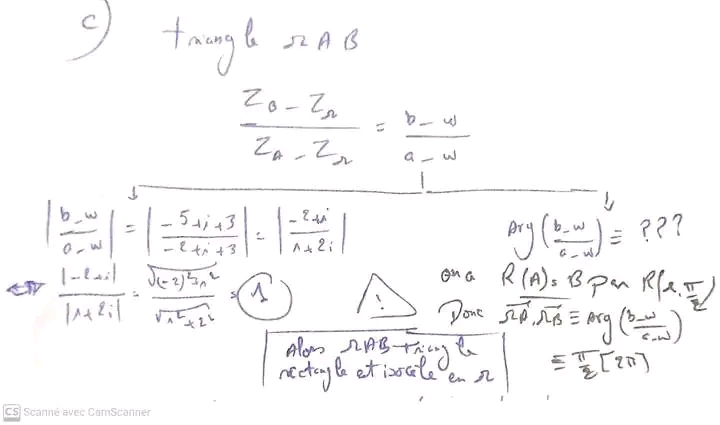 c)
triangle ΩAB
Z_B - Z_Ω / Z_A - Z_Ω = b - w / a - w
|b - w / a - w| = |-5+i+3 / -2+i+3| = |-2+i / 1+2i|
|-2+i| / |1+2i| = √((-2)²+1²) / √(1²+2²) = 1
Arg(b-w / a-w) ≡ ???
on a R(A)=B par R(Ω, π/2)
Donc ΩA, ΩB ≡ Arg(b-w / a-w)
≡ π/2 [2π]
!
Alors ΩAB triangle
rectangle et isocèle en Ω
CS Scanné avec CamScanner